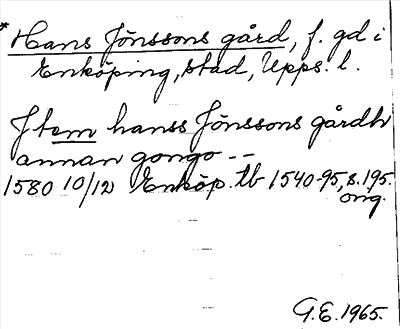 * Hans Jönssons gård, f. gd i
Enköping, stad, Upps. l.
Jtem hanss Jönssons gårdh
annan gongo --
1580 10/12 Enköp. tb 1540-95, s. 195.
orig.
G.E. 1965.